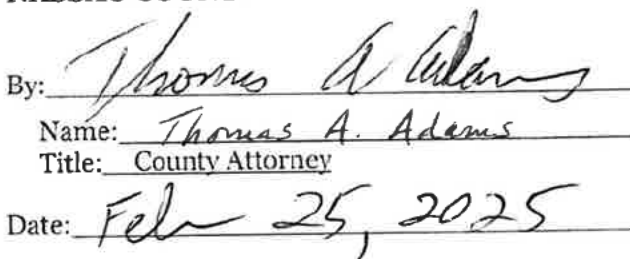 By: Thomas A Adams
Name: Thomas A. Adams
Title: County Attorney
Date: Feb 25, 2025